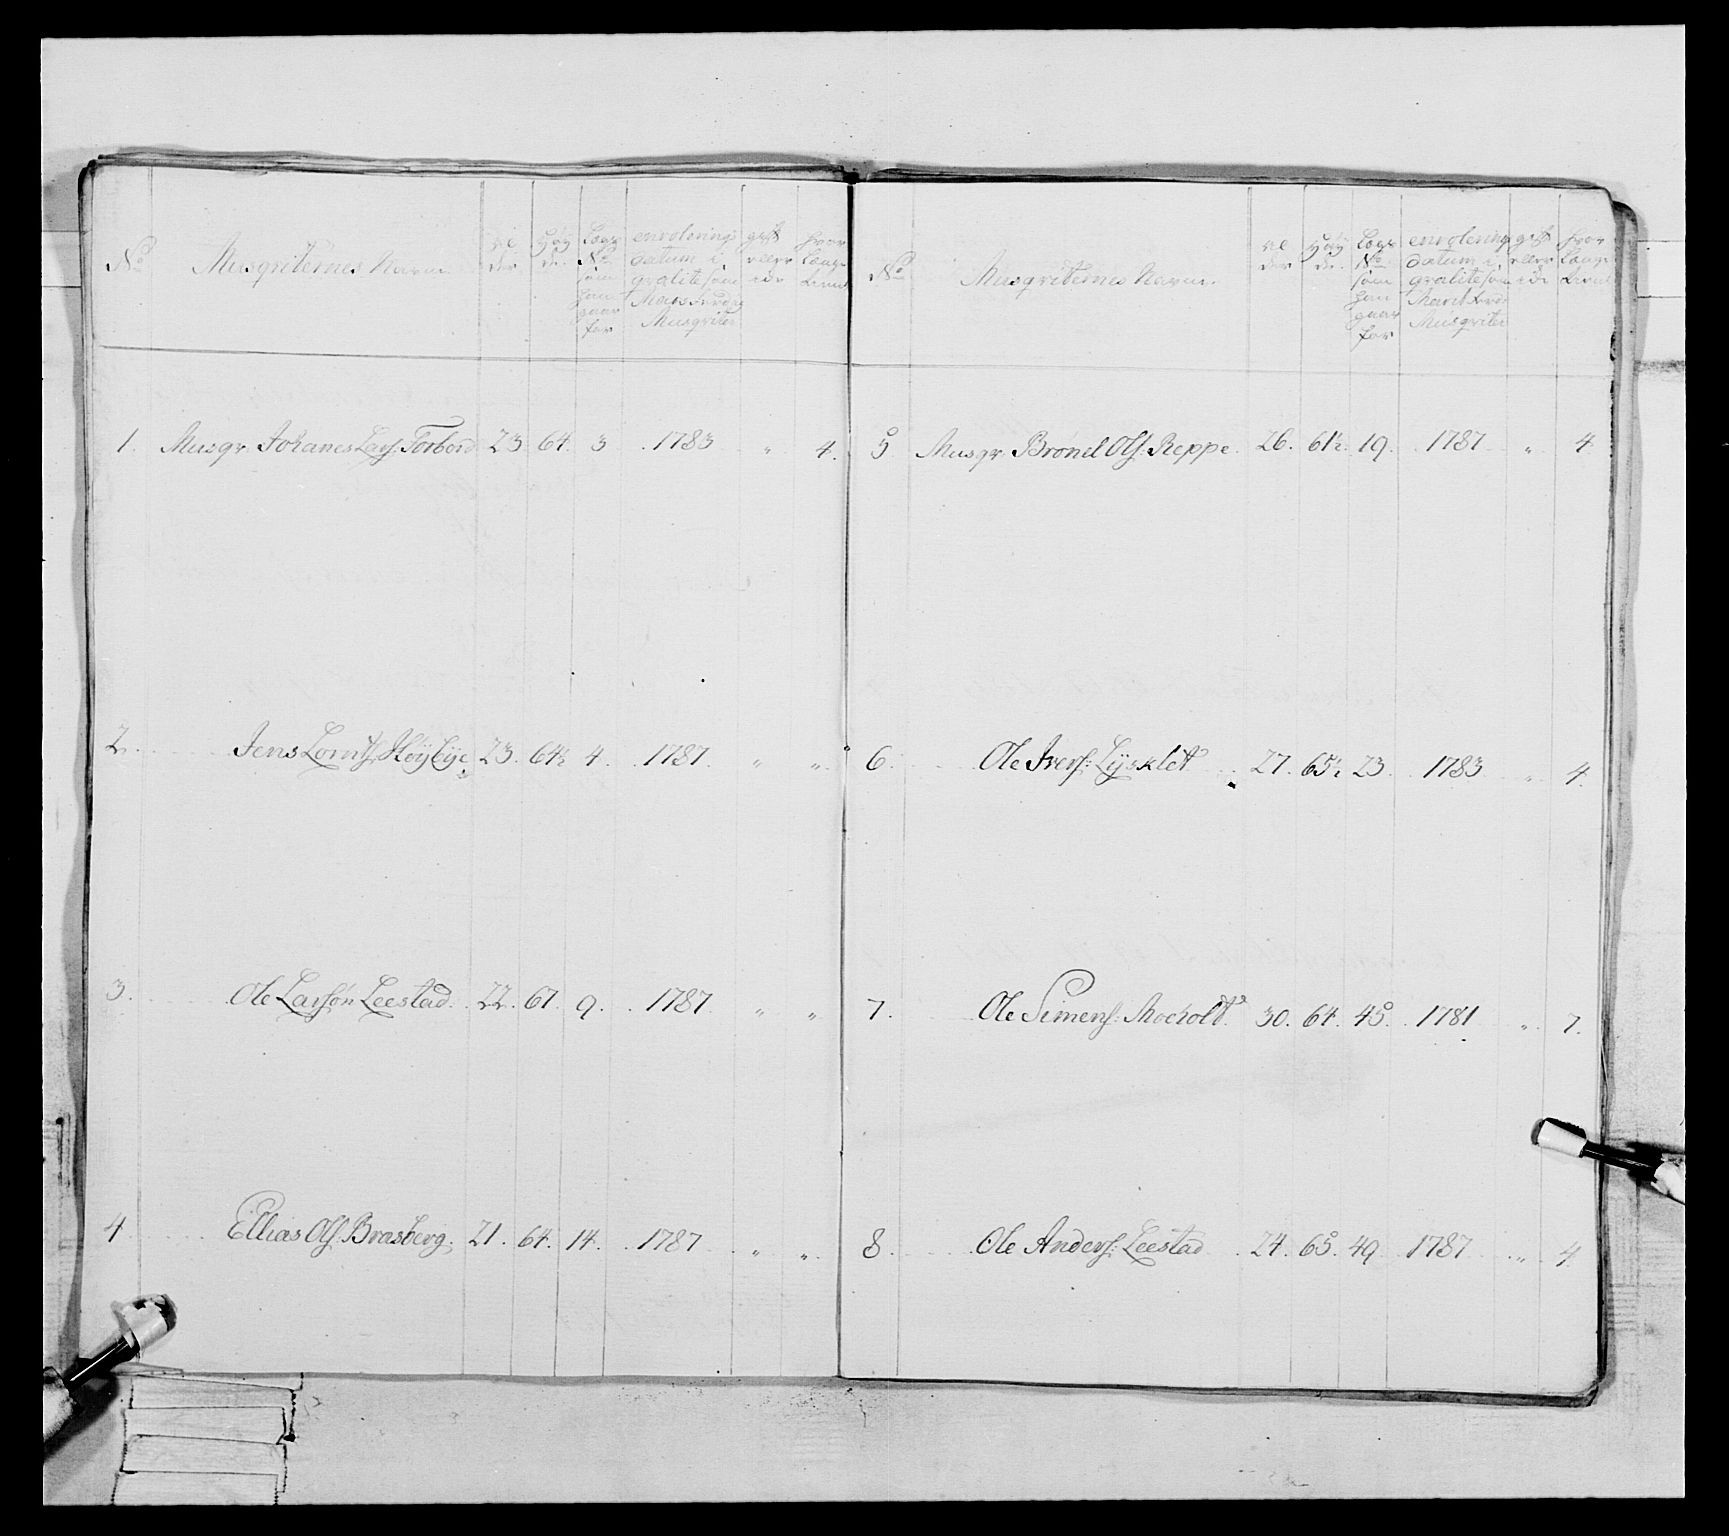 No Musqviternes Navn al der Høy de Lægs No som han gaar for enrolering datum i qvalite som Musqviter gift eller ei hvor Længe tient
1. Musqv: Johanes Lars: Forbord 23. 64. 3. 1783 " 4.
2. Jens Lornts: Høybye 23. 64½ 4. 1787. " "
3. Ole Larsøn Leestad. 22. 67. 9. 1787 " "
4 Ellias Ols: Brasberg. 21. 64. 14. 1787 " "
No Musqviternes Navn. al der Høy de Lægs No som han gaar for enrolering datum i qvalite som Musqviter gift eller ei hvor Længe tient
5 Musqv: Bronel Ols: Reppe. 26. 61½. 19. 1787 " 4.
6. Ole Ivers: Lysklet 27. 65½ 23. 1783 " 4.
7. Ole Simens: Mocholt. 30. 64. 45. 1781 " 7.
8. Ole Anders: Leestad 24. 65. 49 1787 " 4.